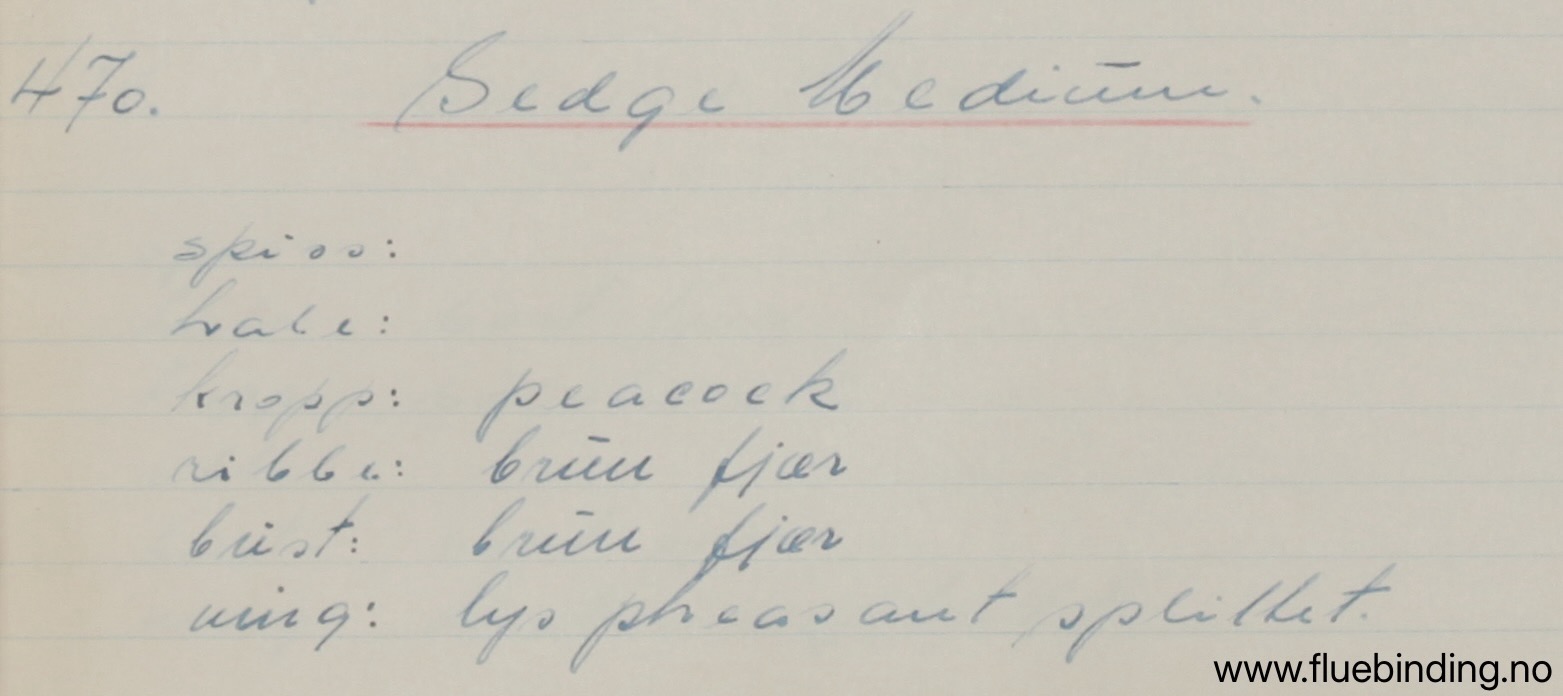 470. Sedge Medium.
spiss:
hale:
kropp: peacock
ribbe: brun fjær
bust: brun fjær
ving: lys pheasant splittet.
www.fluebinding.no